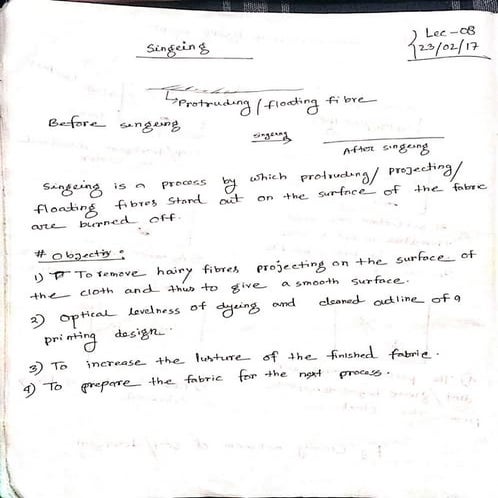 Lec-08
23/02/17
Singeing
Protruding/floating fibre
Before singeing
singeing
After singeing
Singeing is a process by which protruding/ projecting/
floating fibres stand out on the surface of the fabric
are burned off.
# Objectiv:
1) To remove hairy fibres projecting on the surface of
the cloth and thus to give a smooth surface.
2) Optical levelness of dyeing and cleaned outline of a
printing design.
3) To increase the lusture of the finished fabric.
4) To prepare the fabric for the next process.